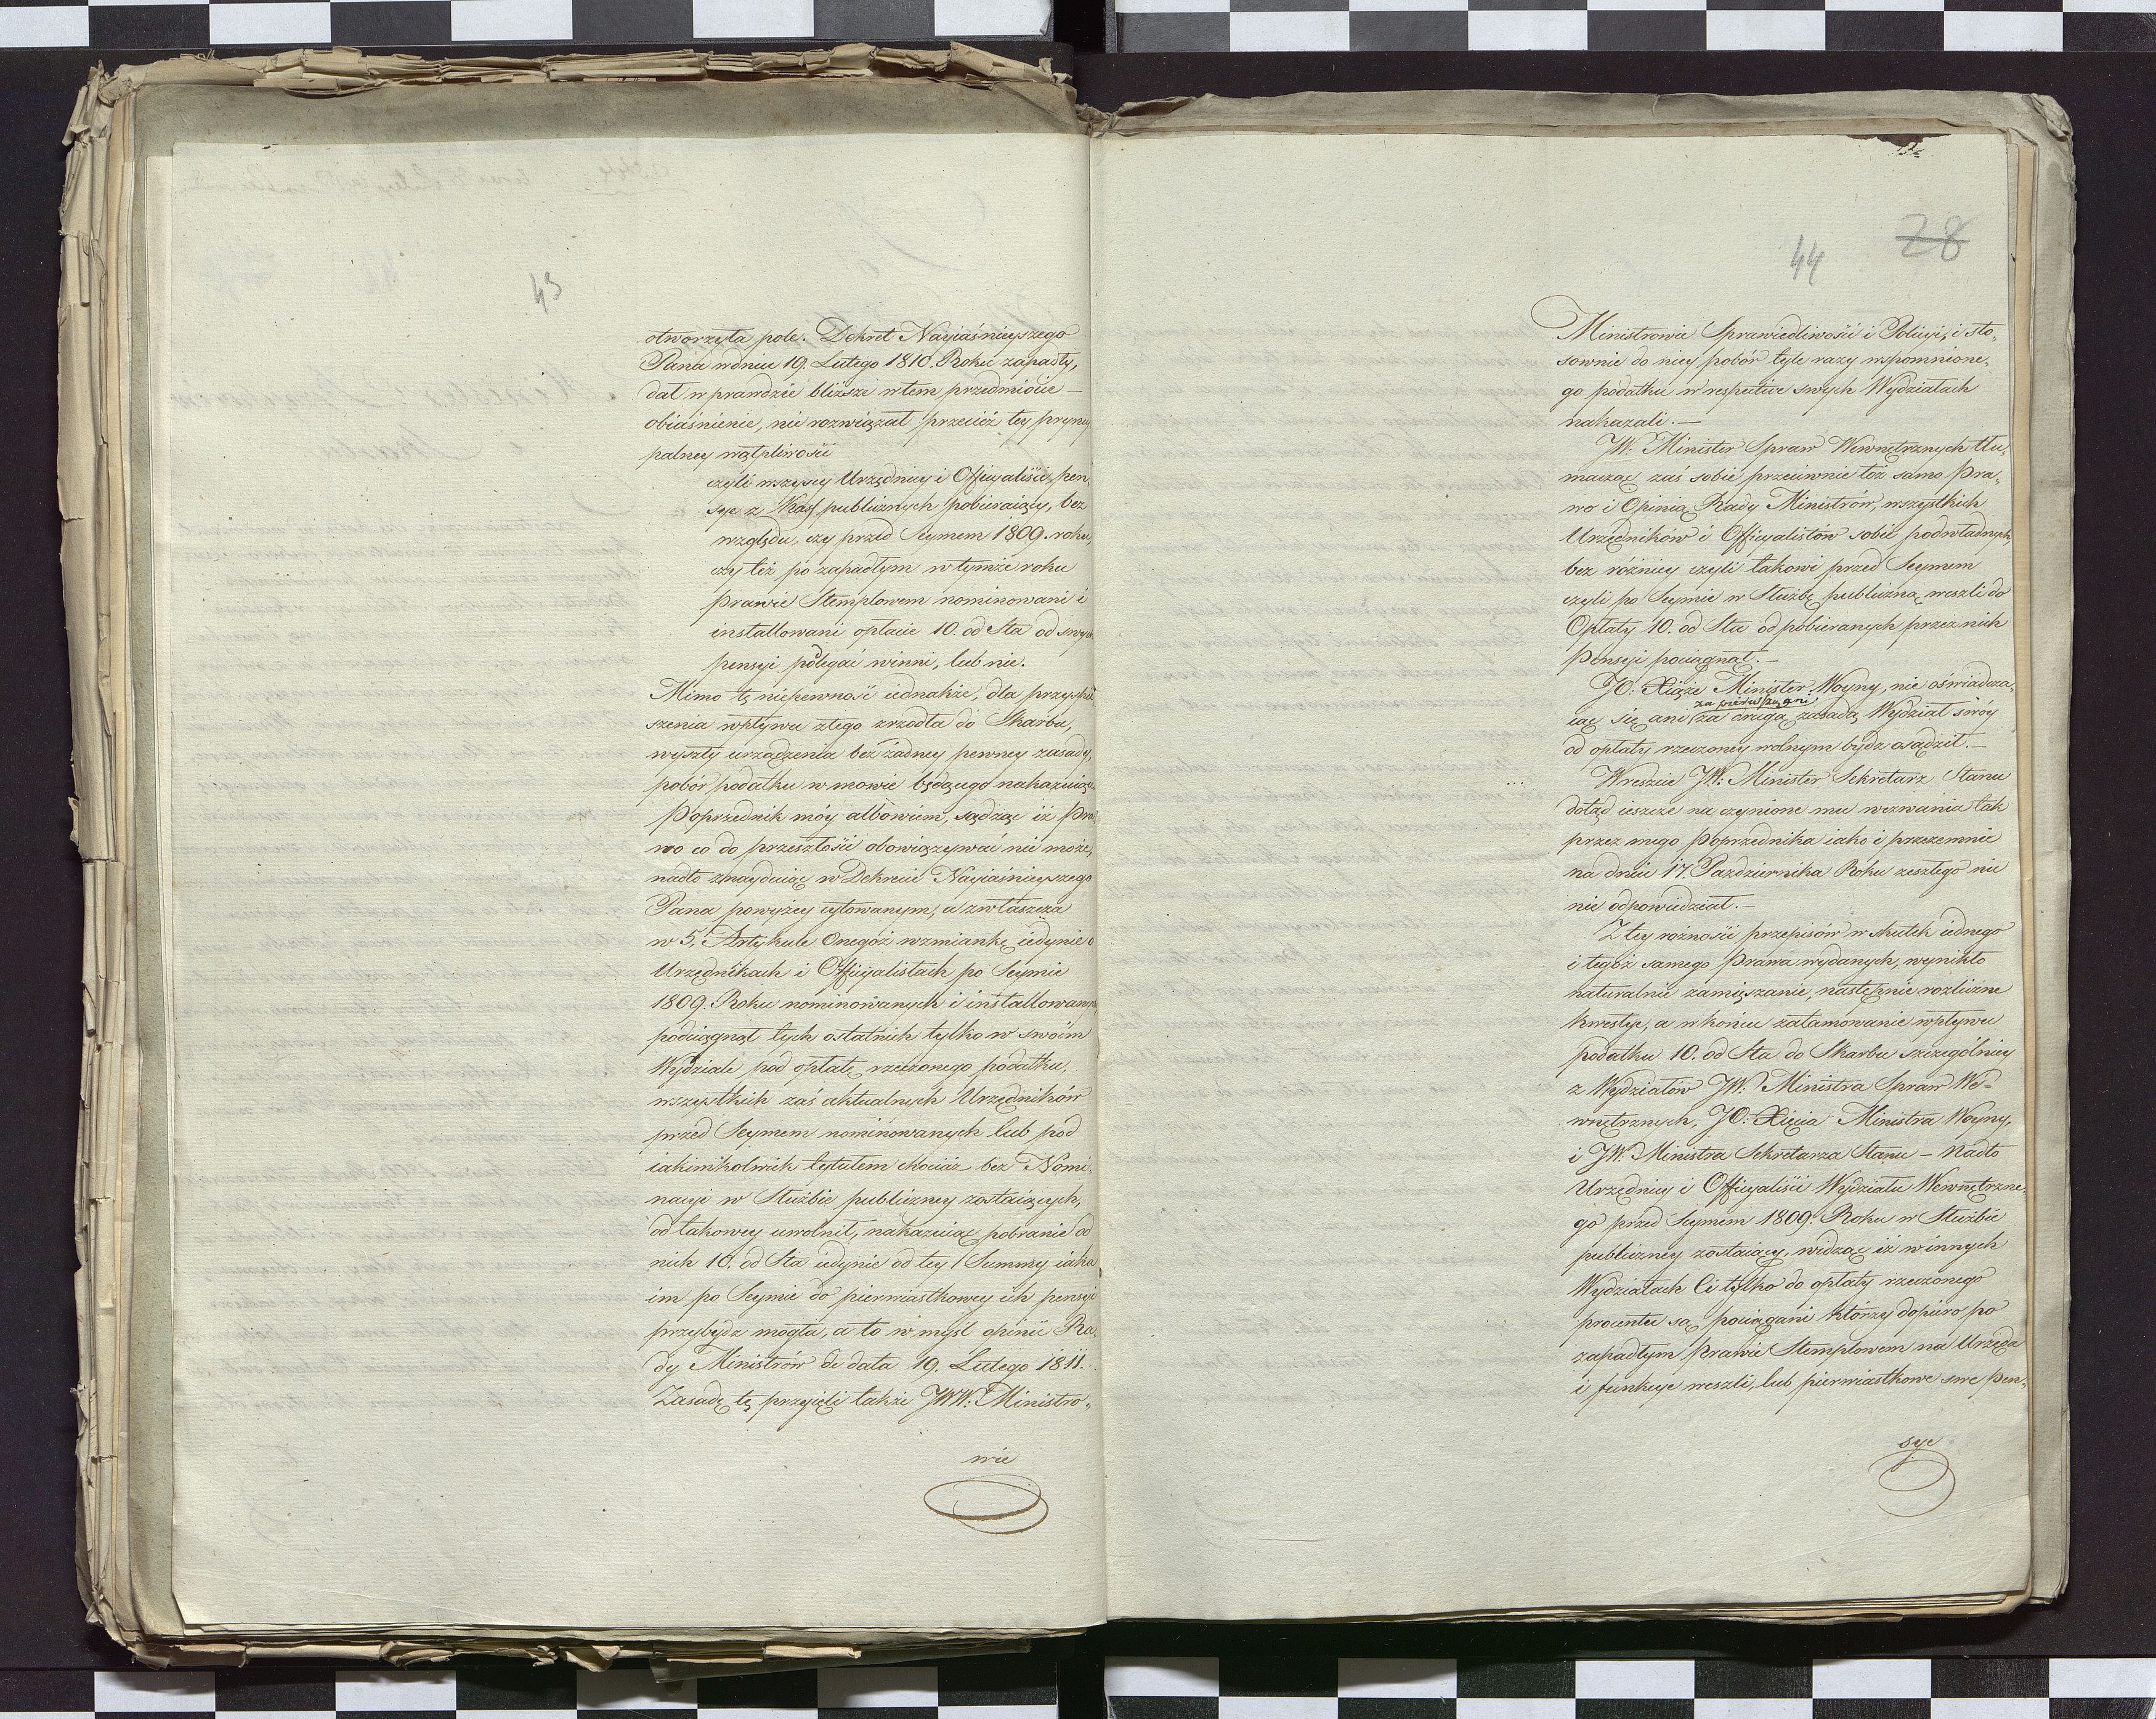 43
otworzyta pole. Dekret Nayiaśnieyszego
Pana w dniu 19. Lutego 1810. Roku zapadły,
dał wprawdzie bliższe w tem przedmiocie
obiaśnienie, nie rozwiązał przecież tey pryncy
palney wątpliwości
czyli wszyscy Urzędnicy i Officyaliści, pen-
sye z Kass publicznych pobieraiący, bez
względu, czy przed Seymem 1809. roku,
czy też po zapadłym w tymże roku
Prawie Stemplowem nominowani i
installowani opłacie 10. od Sta od swych
pensyi podlegać winni, lub nie.
Mimo tę niepewność iednakże, dla przyspie
szenia wpływu z tego zrzodła do Skarbu,
wyszły urządzenia bez żadney pewney zasady,
pobór podatku w mowie będącego nakazuiące
Poprzednik móy albowiem, sądząc iż Pra
wo co do przeszłości obowiązywać nie może,
nadto znayduiąc w Dekrecie Nayiaśnieyszego
Pana powyżey cytowanym, a zwłaszcza
w 5. Artykule onegoż wzmiankę iedynie o
Urzędnikach i Officyalistach po Seymie
1809. Roku nominowanych i installowanych
pociągnął tych ostatnich tylko w swoim
Wydziale pod opłatę rzeczonego podatku,
wszystkich zaś aktualnych Urzędników
przed Seymem nominowanych lub pod
iakimkolwiek tytułem chociaż bez Nomi-
nacyi w Służbie publiczney zostaiących,
od takowey uwolnił, nakazuiąc pobranie od
nich 10. od Sta iedynie od tey Summy, iaka
im po Seymie do pierwiastkowey ich pensyi
przybydź mogła, a to w myśl opinii Ra-
dy Ministrów de data 19. Lutego 1811.
Zasadę tę przyięli także JWW: Ministro-
wie
44
28
Ministrowie Sprawiedliwości i Policyi, i sto-
sownie do niey pobór tyle razy wspomnione-
go podatku w respective swych Wydziałach
nakazali. —
JW: Minister Spraw Wewnętrznych tłu-
macząc zaś sobie przeciwnie toż samo Pra-
wo i Opinią Rady Ministrów, wszystkich
Urzędników i Officyalistów sobie podwładnych,
bez różnicy czyli takowi przed Seymem
czyli po Seymie w Służbę publiczną weszli do
Opłaty 10. od Sta od pobieranych przez nich
Pensyi pociągnął. —
JO: Xiąże Minister Woyny, nie oświadcza-
za pierwszą ani
iąc się ani za drugą zasadą Wydział swóy
od opłaty rzeczoney wolnym bydź osądził. —
Wreszcie JW: Minister Sekretarz Stanu
dotąd ieszcze na czynione mu wezwania tak
przez mego Poprzednika iako i przezemnie
na dniu 17. Października Roku zeszłego nic
nie odpowiedział. —
Z tey rożności przepisów w skutek iednego
i tegoż samego Prawa wydanych, wynikło
naturalnie zamięszanie, następnie rozliczne
kwestye, a w końcu zatamowanie wpływu
podatku 10. od Sta do Skarbu szczególniey
z Wydziałów JW: Ministra Spraw We-
wnętrznych, JO: Xięcia Ministra Woyny,
i JW: Ministra Sekretarza Stanu — Nadto
Urzędnicy i Officyaliści Wydziału Wewnętrzne-
go przed Seymem 1809. Roku w Służbie
publiczney zostaiący, widząc iż w innych
Wydziałach Ci tylko do opłaty rzeczonego
procentu są pociągani którzy dopiero po
zapadłym Prawie Stemplowem na Urzęda
i funkcye weszli, lub pierwiastkowe swe pen-
sye